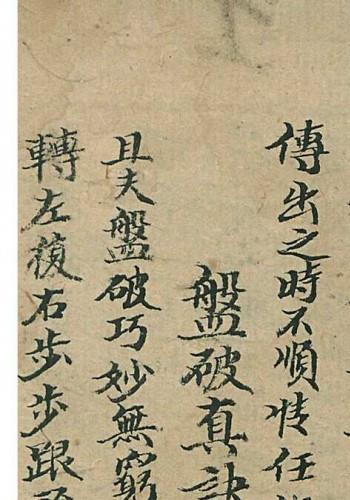 傳出之時不順情任
盤破真訣
且夫盤破巧妙無窮
轉左復右步步跟